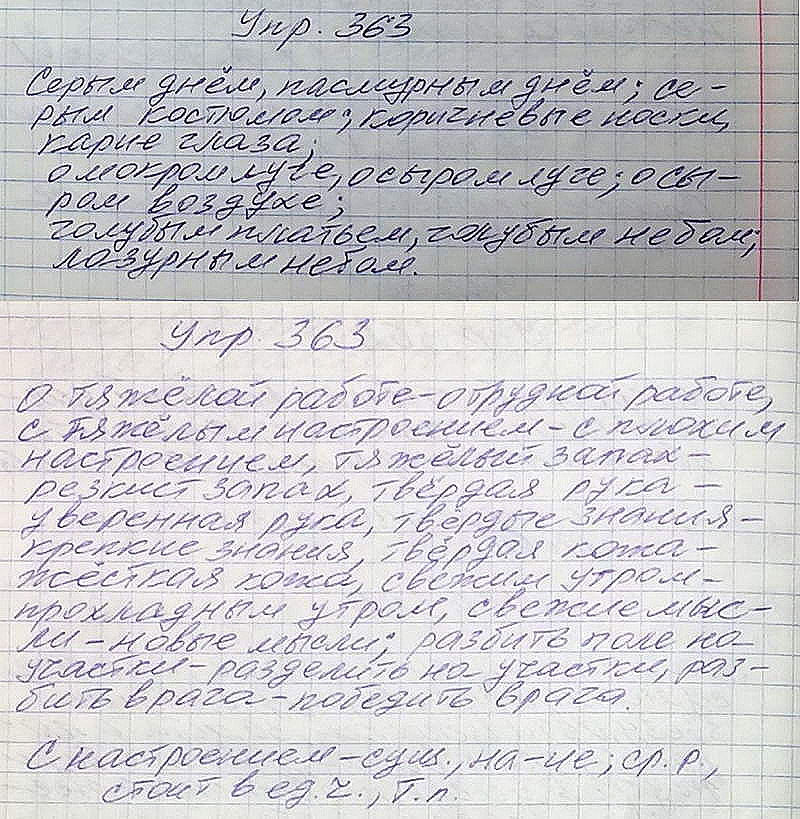 Упр. 363
Серым днём, пасмурным днём; се-
рым костюмом; коричневые носки,
карие глаза;
о мокром луге, о сыром луге; о сы-
ром воздухе;
голубым платьем, голубым небом;
лазурным небом.
Упр. 363
О тяжёлой работе-о трудной работе,
с тяжёлым настроением-с плохим
настроением, тяжёлый запах-
резкий запах, твёрдая рука-
уверенная рука, твёрдые знания-
крепкие знания, твёрдая кожа-
жёсткая кожа, свежим утром-
прохладным утром, свежие мыс-
ли-новые мысли; разбить поле на
участки-разделить на участки, раз-
бить врага-победить врага.
С настроением-сущ., на-ие; ср. р.,
стоит в ед. ч., Т.п.